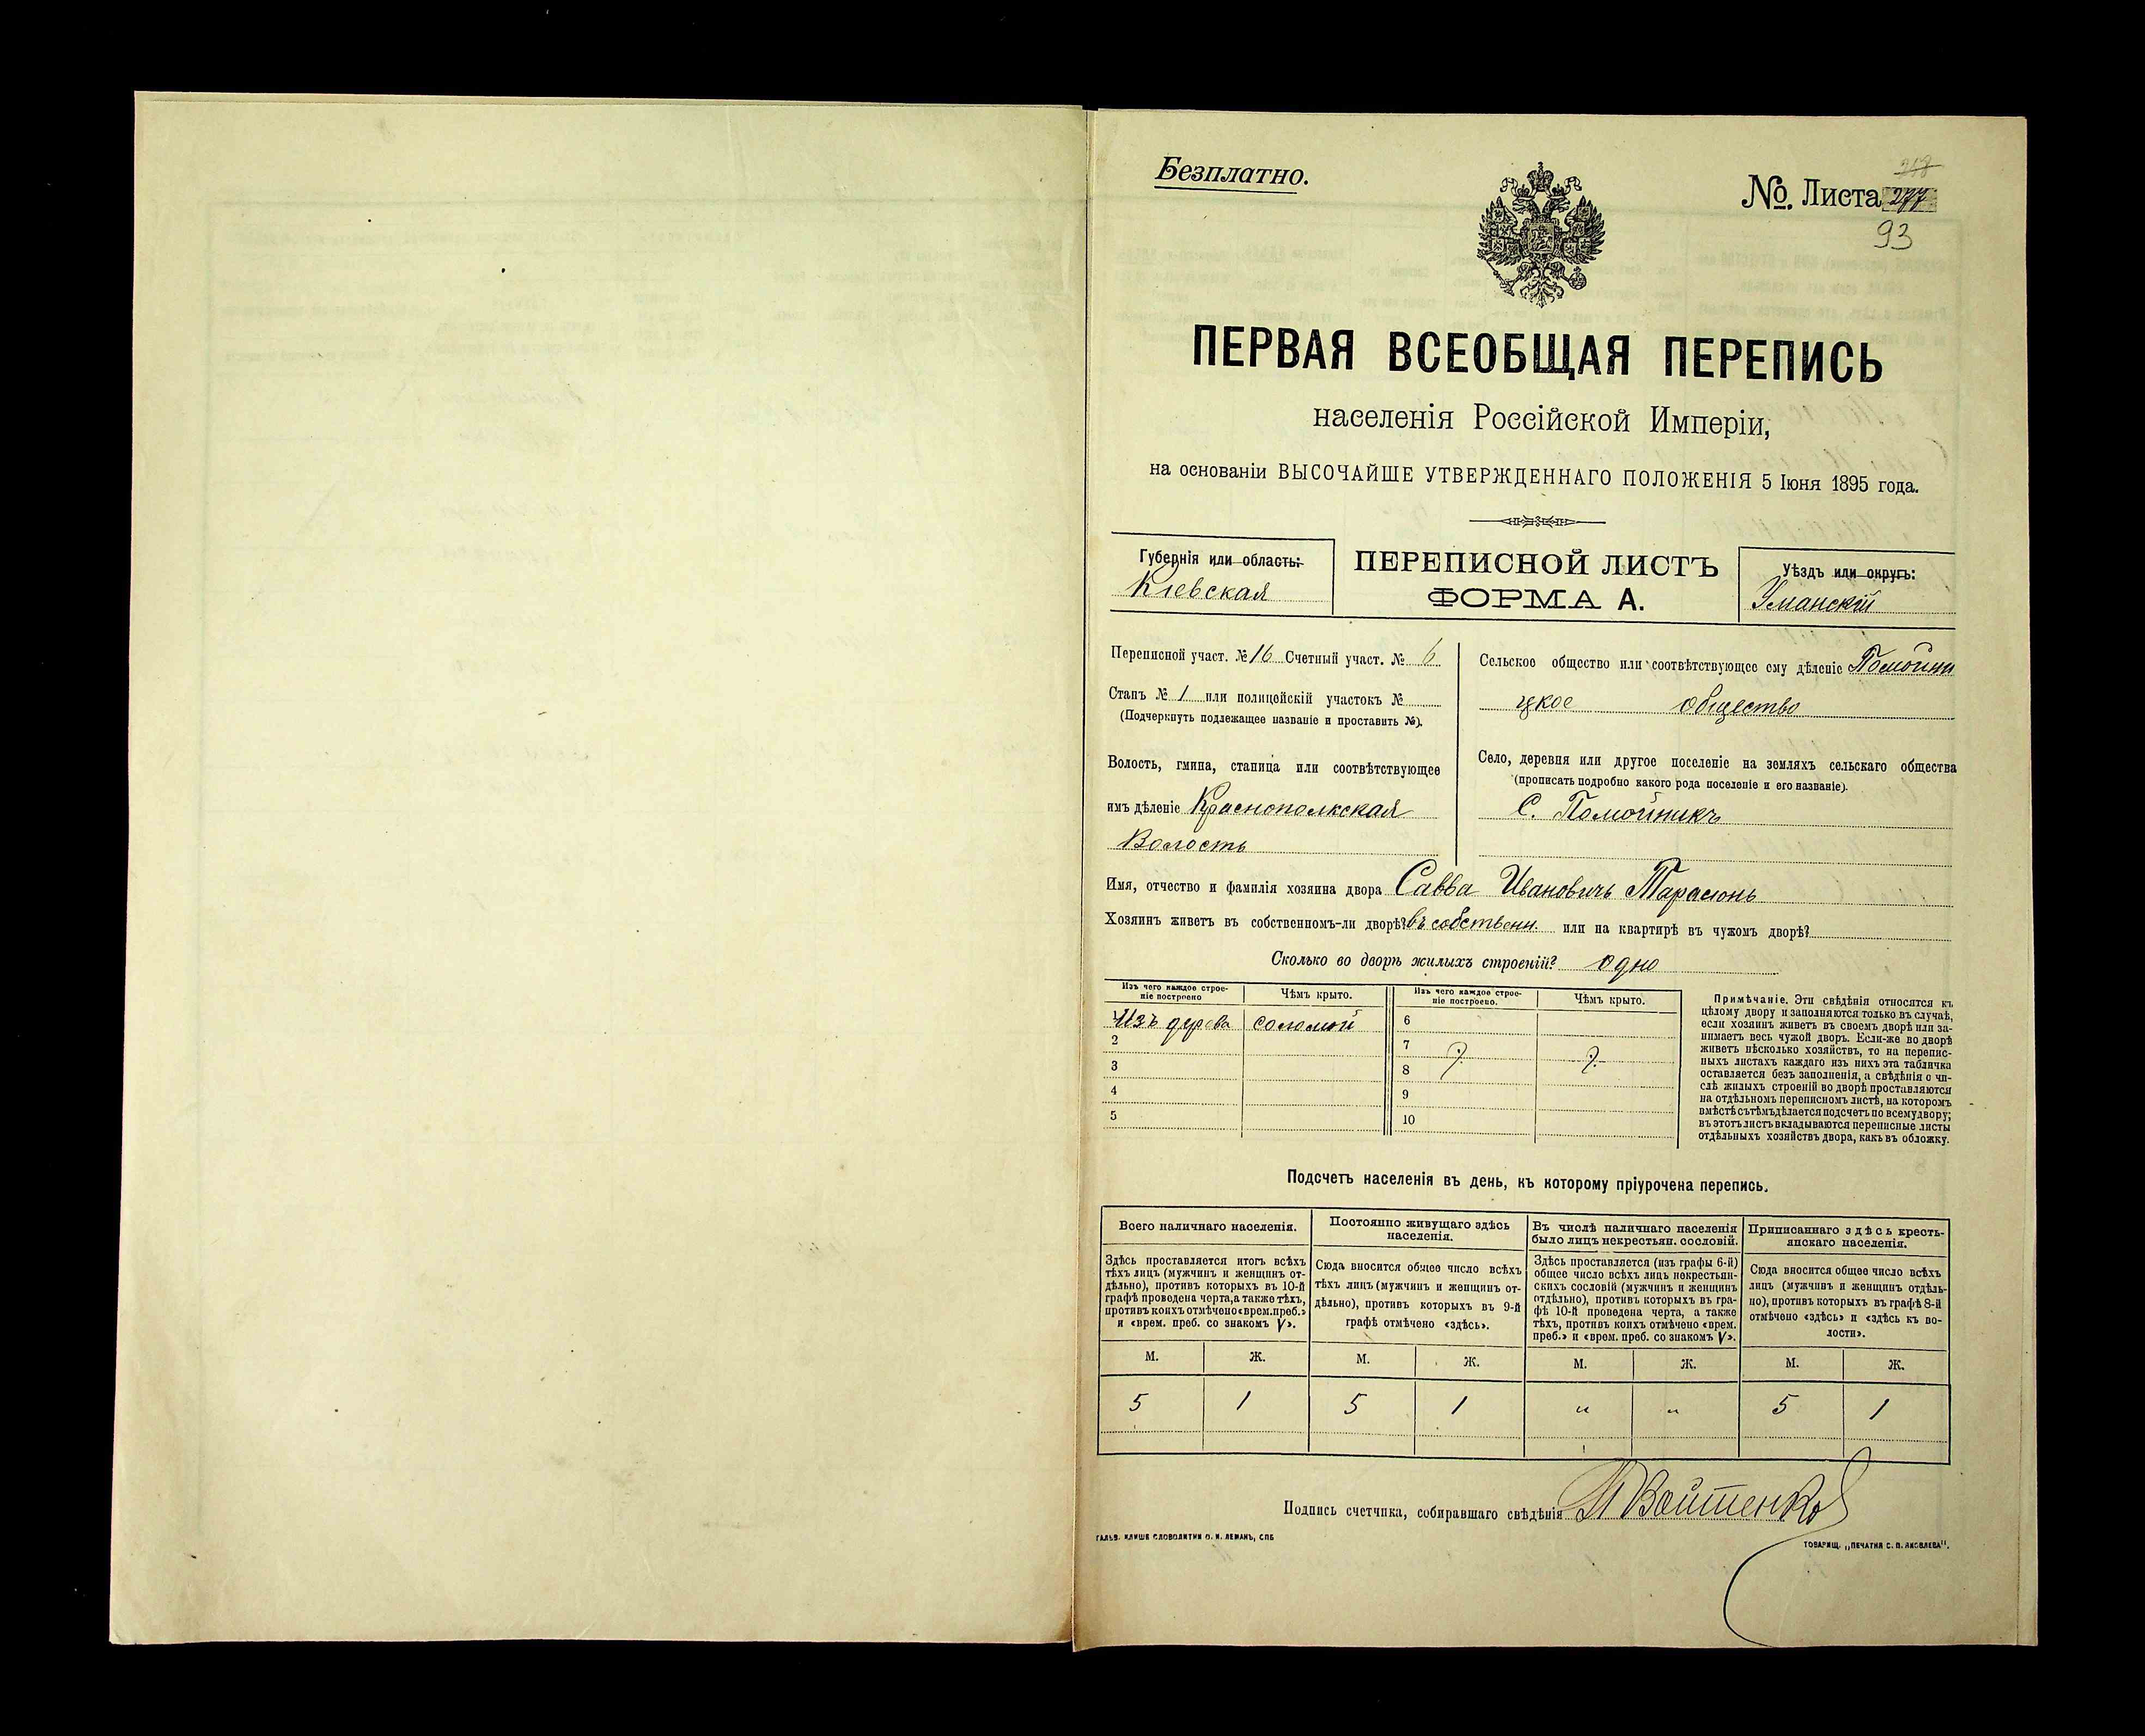 Безплатно.
№. Листа 277
93
ПЕРВАЯ ВСЕОБЩАЯ ПЕРЕПИСЬ
населенія Россійской Имперіи,
на основаніи ВЫСОЧАЙШЕ УТВЕРЖДЕННАГО ПОЛОЖЕНІЯ 5 Іюня 1895 года.
Губернія или область:
Кіевская
ПЕРЕПИСНОЙ ЛИСТЪ
ФОРМА А.
Уѣздъ или округъ:
Уманскій
Переписной участ. № 16 Счетный участ. № 6
Станъ № 1 или полицейскій участокъ №
(Подчеркнуть подлежащее названіе и проставить №).
Волость, гмина, станица или соотвѣтствующее
имъ дѣленіе Краснополкская
Волость
Сельское общество или соотвѣтствующее ему дѣленіе Помойни
цкое общество
Село, деревня или другое поселеніе на земляхъ сельскаго общества
(прописать подробно какого рода поселеніе и его названіе).
С. Помойникъ
Имя, отчество и фамилія хозяина двора Савва Ивановичъ Тарасюнъ
Хозяинъ живетъ въ собственномъ-ли дворѣ? въ собственн. или на квартирѣ въ чужомъ дворѣ?
Сколько во дворѣ жилыхъ строеній? одно
Изъ чего каждое строе-
ніе построено
Чѣмъ крыто.
Изъ дерева соломой
2
3
4
5
Изъ чего каждое строе-
ніе построено.
Чѣмъ крыто.
6
7
8
9
10
Примѣчаніе. Эти свѣдѣнія относятся къ
цѣлому двору и заполняются только въ случаѣ,
если хозяинъ живетъ въ своемъ дворѣ или за-
нимаетъ весь чужой дворъ. Если-же во дворѣ
живетъ нѣсколько хозяйствъ, то на перепис-
ныхъ листахъ каждаго изъ нихъ эта табличка
оставляется безъ заполненія, а свѣдѣнія о чи-
слѣ жилыхъ строеній во дворѣ проставляются
на отдѣльномъ переписномъ листѣ, на которомъ
вмѣстѣ съ тѣмъ дѣлается подсчетъ по всему двору;
въ этотъ листъ вкладываются переписные листы
отдѣльныхъ хозяйствъ двора, какъ въ обложку.
Подсчетъ населенія въ день, къ которому пріурочена перепись.
Всего наличнаго населенія.
Здѣсь проставляется итогъ всѣхъ
тѣхъ лицъ (мужчинъ и женщинъ от-
дѣльно), противъ которыхъ въ 10-й
графѣ проведена черта, а также тѣхъ,
противъ коихъ отмѣчено «врем. преб.»
и «врем. преб. со знакомъ V».
М. Ж.
5 1
Постоянно живущаго здѣсь
населенія.
Сюда вносится общее число всѣхъ
тѣхъ лицъ (мужчинъ и женщинъ от-
дѣльно), противъ которыхъ въ 9-й
графѣ отмѣчено «здѣсь».
М. Ж.
5 1
Въ числѣ наличнаго населенія
было лицъ некрестьян. сословій.
Здѣсь проставляется (изъ графы 6-й)
общее число всѣхъ лицъ некрестьян-
скихъ сословій (мужчинъ и женщинъ
отдѣльно), противъ которыхъ въ гра-
фѣ 10-й проведена черта, а также
тѣхъ, противъ коихъ отмѣчено «врем.
преб.» и «врем. преб. со знакомъ V».
М. Ж.
" "
Приписаннаго здѣсь кресть-
янскаго населенія.
Сюда вносится общее число всѣхъ
лицъ (мужчинъ и женщинъ отдѣль-
но), противъ которыхъ въ графѣ 8-й
отмѣчено «здѣсь» и «здѣсь къ во-
лости».
М. Ж.
5 1
Подпись счетчика, собиравшаго свѣдѣнія Войтенко
ГАЛЬВ. КЛИШЕ СЛОВОЛИТНИ О. И. ЛЕМАНЪ, СПБ
ТОВАРИЩ. „ПЕЧАТНЯ С. П. ЯКОВЛЕВА".